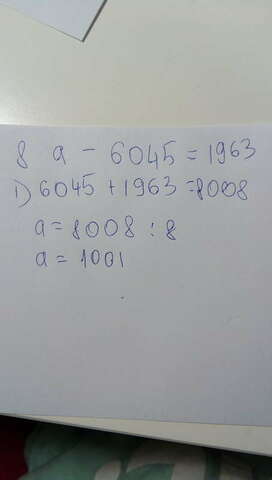 8 a - 6045 = 1963
1) 6045 + 1963 = 8008
a = 8008 : 8
a = 1001